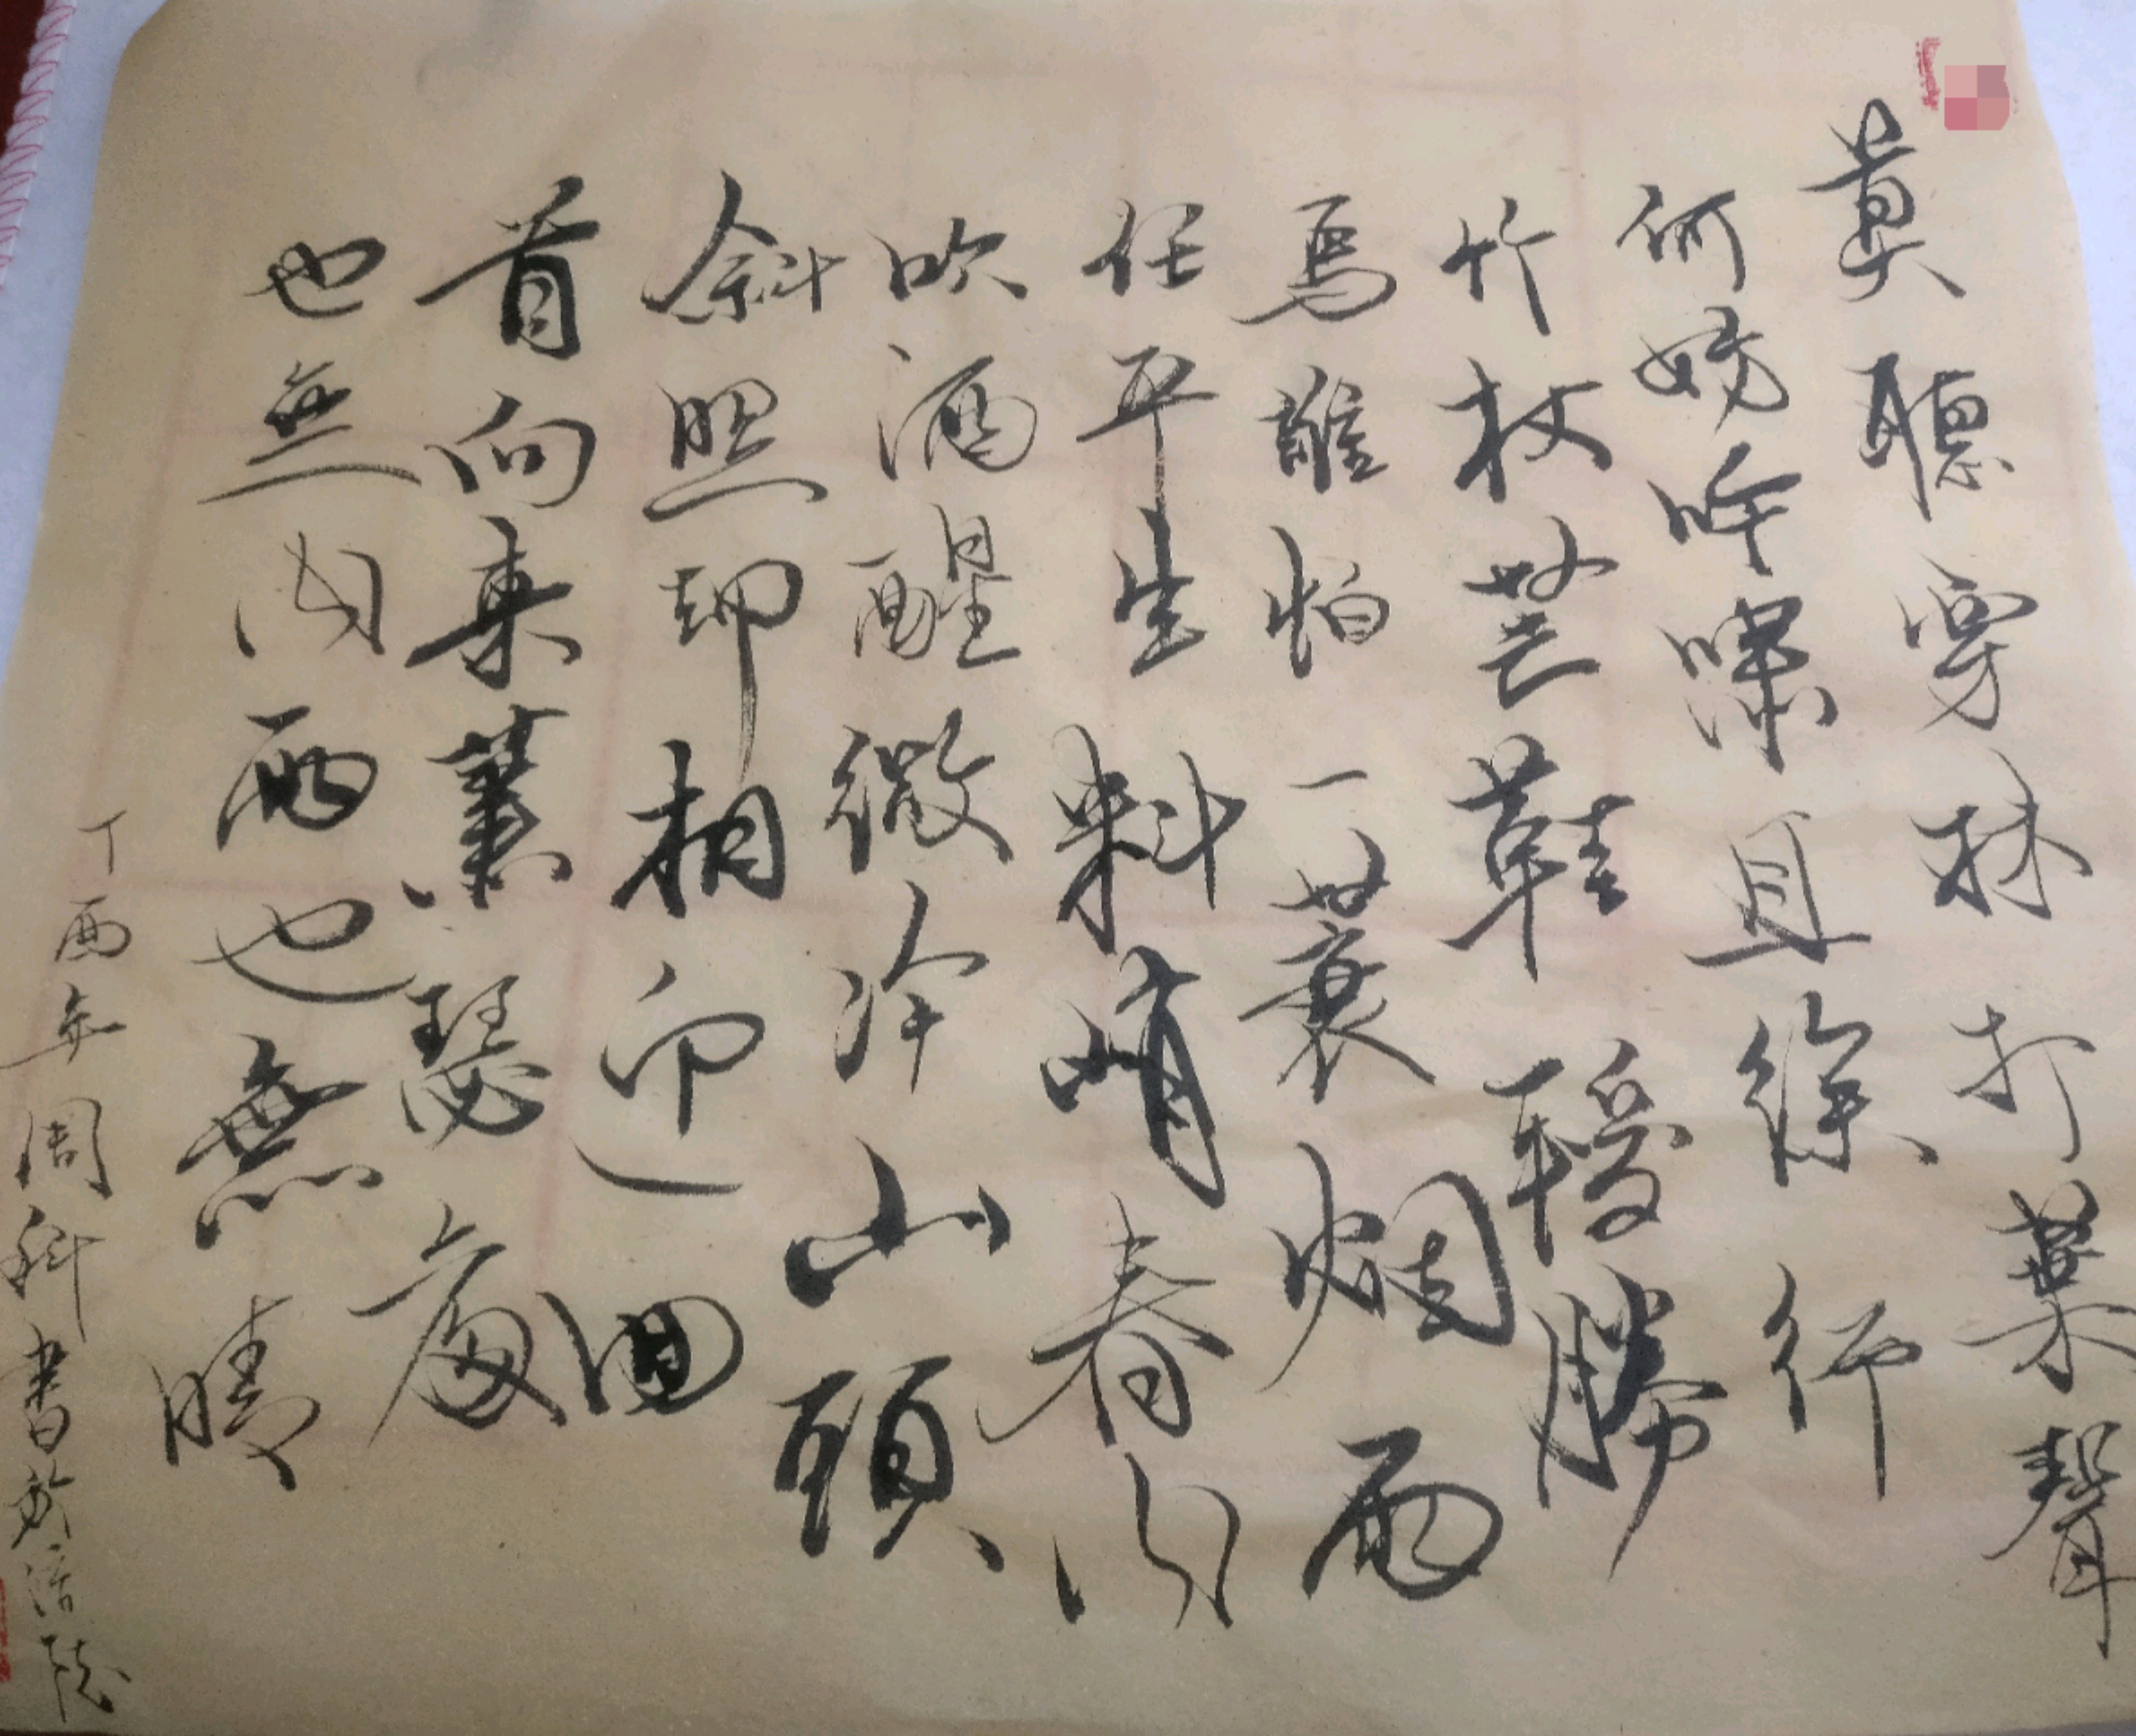 莫聽穿林打葉聲
何妨吟嘯且徐行
竹杖芒鞋輕勝
馬誰怕一蓑烟雨
任平生料峭春風
吹酒醒微冷山頭
斜照却相迎回
首向来蕭瑟處
也無風雨也無晴
丁酉年周科書於涪陵